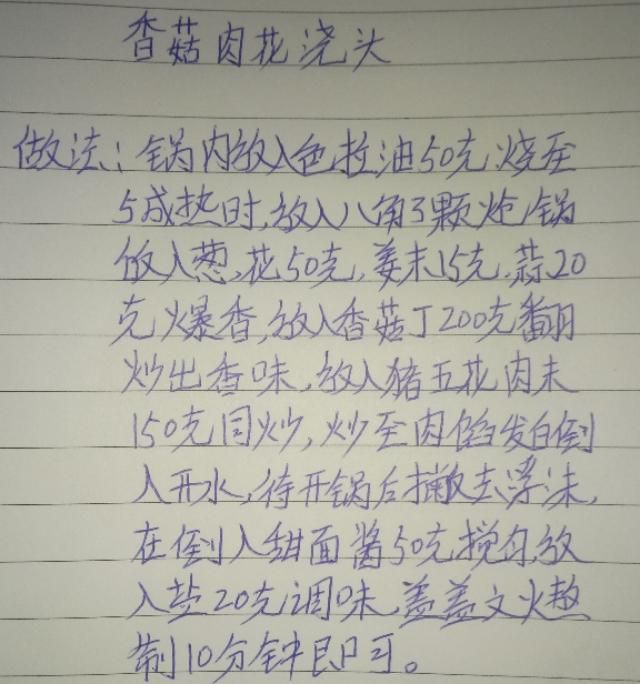 香菇肉花浇头
做法:锅内放入色拉油50克烧至
5成热时,放入八角3颗炝锅
放入葱,花50克,姜末15克,蒜20
克爆香,放入香菇丁200克翻
炒出香味,放入猪五花肉末
150克同炒,炒至肉馅发白倒
入开水,待开锅后撇去浮沫,
在倒入甜面酱50克搅匀,放
入盐20克调味,盖盖文火熬
制10分钟即可。